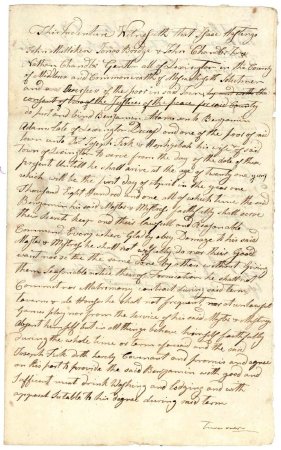 This Indenture Witnesseth that Isaac Hastings
John Mulliken Jonas Bridge & John Chandler &
Nathan Chandler Gentn all of Lexington in the County
of Middx and Commonwealth of Massachusetts Selectmen
and Overseers of the poor in said Town by and with the
consent of two of the Justices of the peace for said County
do put and bind Benjamin son to Benjamin
late of Lexington Decesd and one of the poor of said
town unto Dr Joseph Fisk & his wife of said
Town from the day of the date of these
present Until he shall arrive at the age of twenty one years
which will be the first day of April in the year one
Thousand Eight Hundred and one all of which time the said
Benjamin his said Master & Mistress faithfully shall serve
their secrets keep and their Lawfull and Reasonable
Command Every where Gladly obey Damage to his said
Master & Mistress he shall not do nor their Good
want nor see the same done by others without Giving
them Seasonable notice thereof Fornication he shall not
Commit nor Matrimony contract during said term
taverns & ale Houses he shall not frequent nor at unlawfull
Games play nor from the service of his said Master & Mistress
depart himself but in all things behave himself faithfully
During the whole time or term aforesaid and the said
Joseph Fisk doth hereby Covenant and promise and agree
on his part to provide the said Benjamin with good and
Sufficient meat drink Washing and lodging and with
apparel Sutable to his degree during said term
Turn over